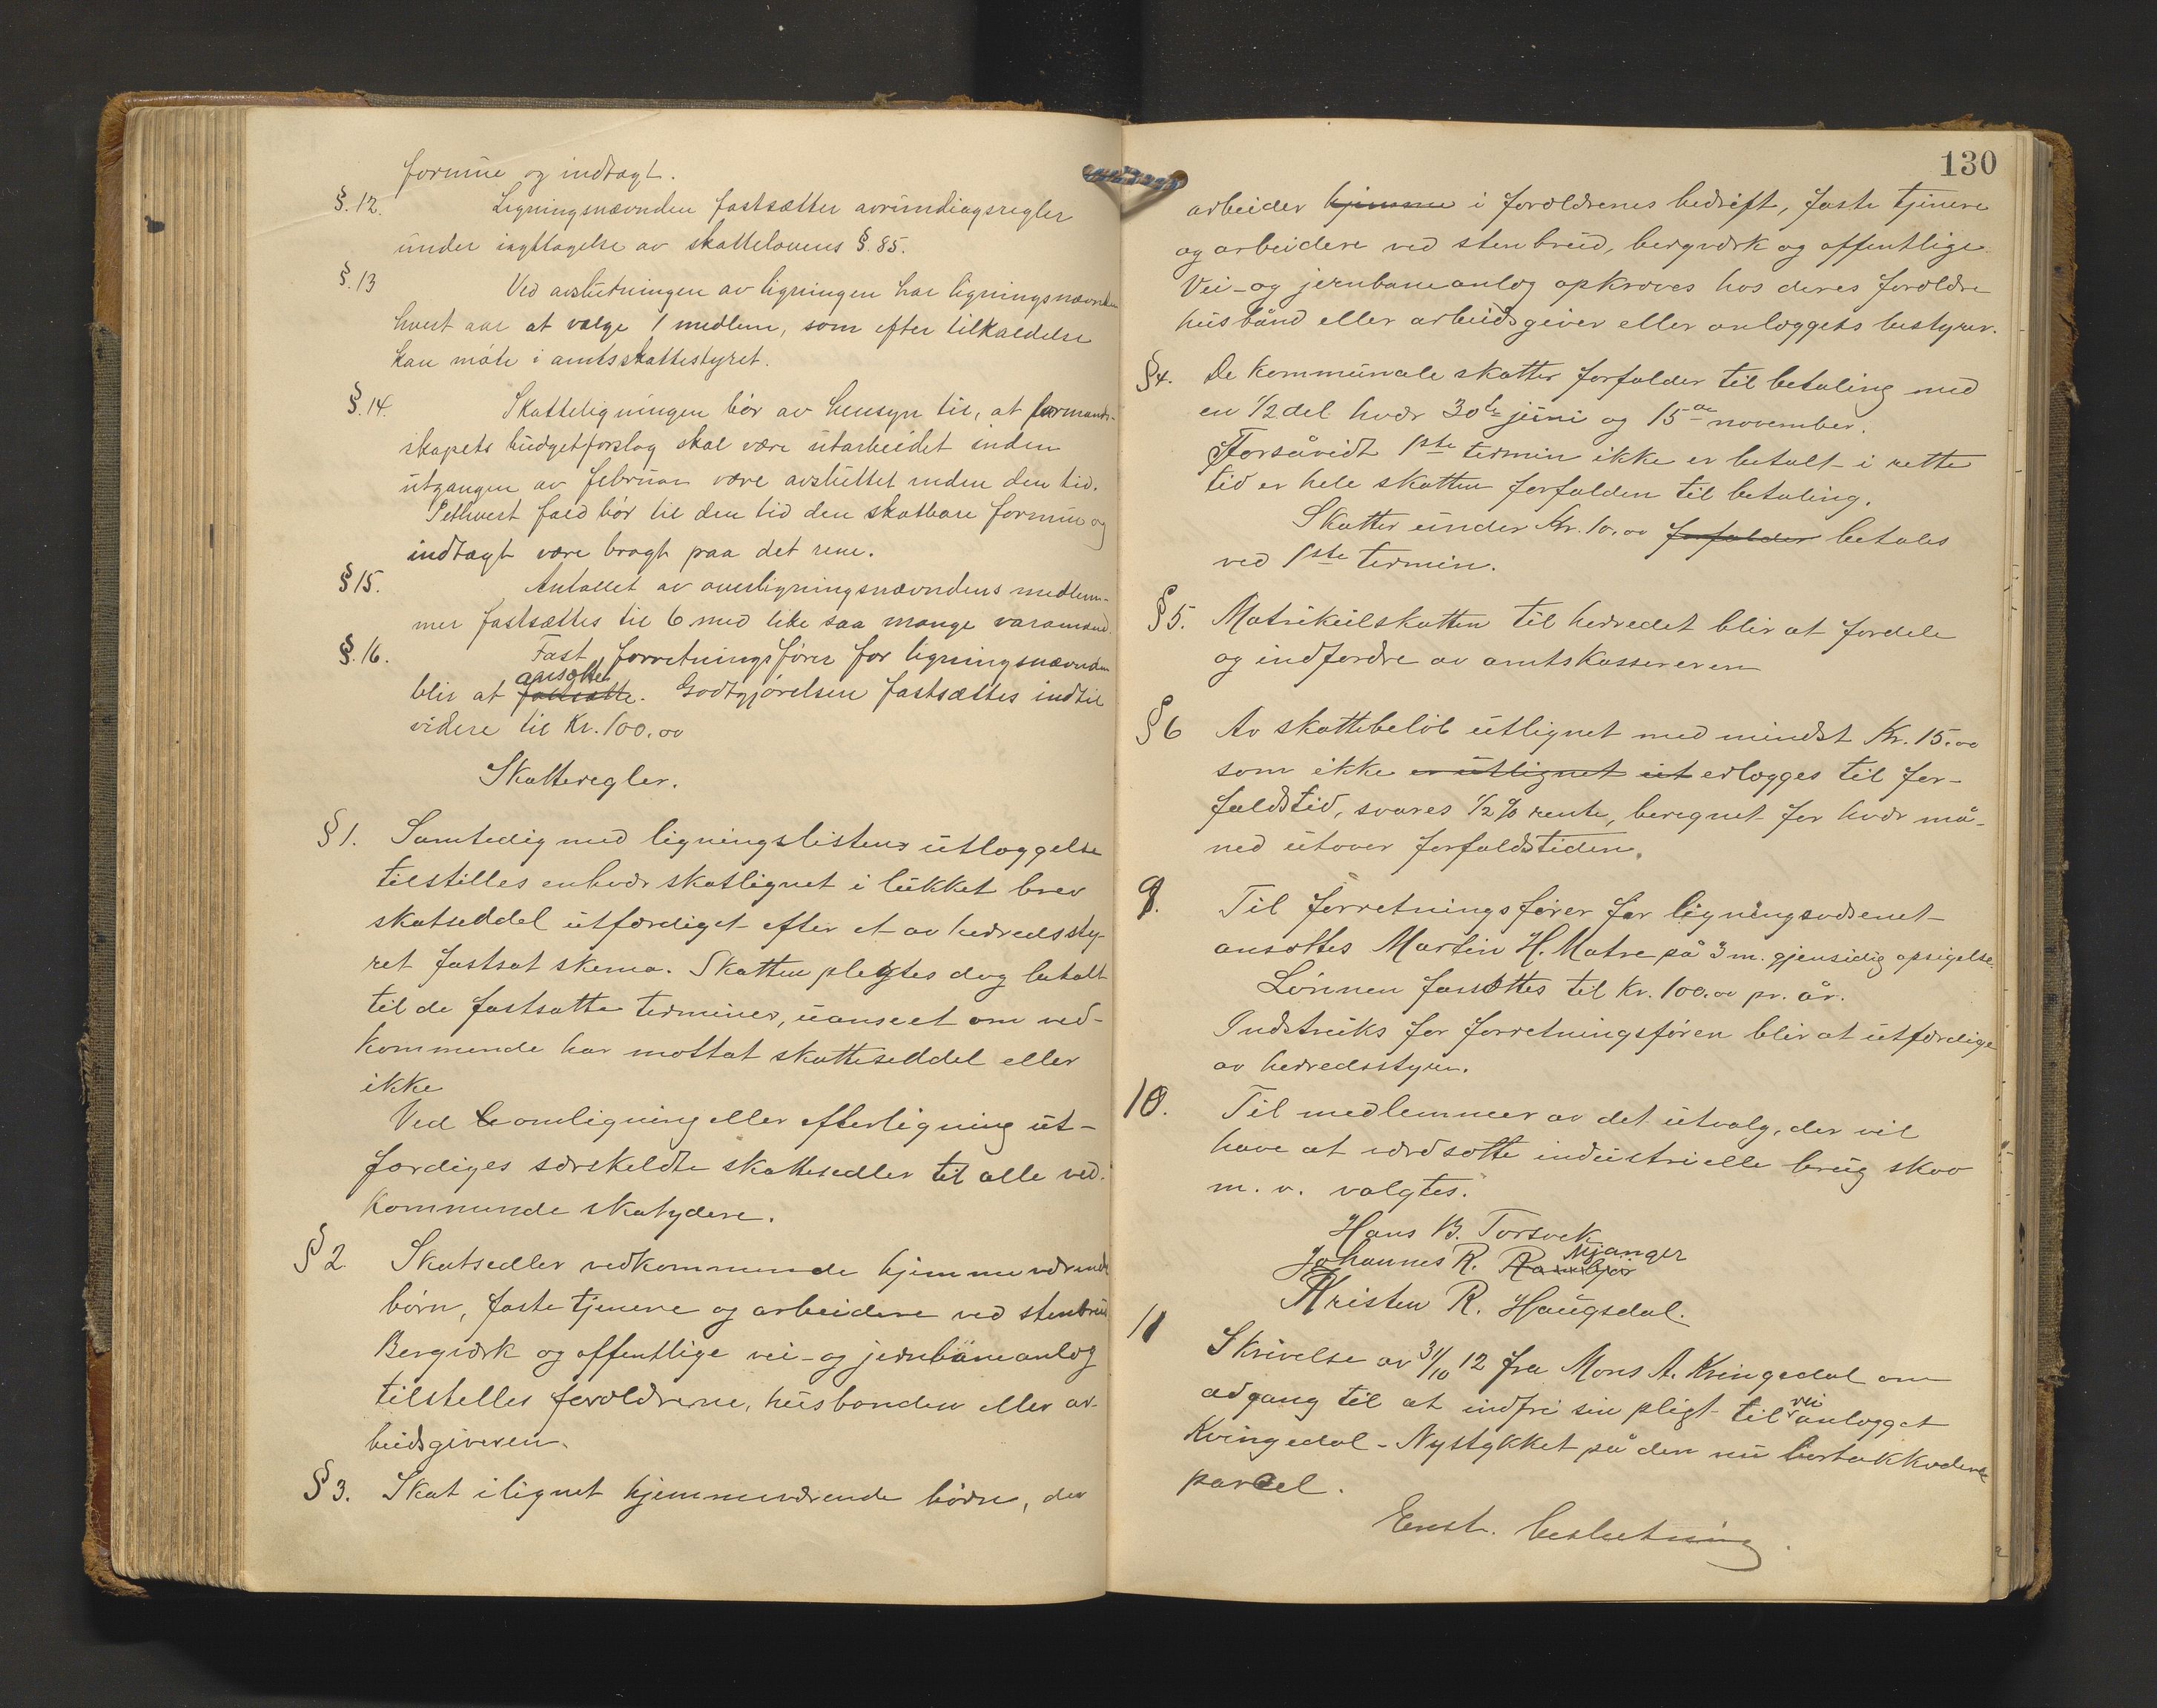 formue og indtægt.
§.12. Ligningsnævnden fastsætter avrundingsregler
under iagttagelse av skattelovens §.85.
§.13 Ved avslutningen av ligningen har ligningsnævnden
hvert aar at vælge 1 medlem, som efter tilkaldelse
kan møte i amtsskattestyret.
§.14. Skatteligningen bør av hensyn til, at formand-
skapets budgetforslag skal være utarbeidet inden
utgangen av februar være avsluttet inden den tid.
I ethvert fald bør til den tid den skatbare formue og
indtægt være bragt paa det rene.
§15. Antallet av overligningsnævndens medlem-
mer fastsættes til 6 med like saa mange varamænd.
§.16. Fast forretningsfører for ligningsnævnden
blir at ansætte fastsætte. Godtgjørelsen fastsættes indtil
videre til Kr. 100.00
Skatteregler.
§1. Samtidig med ligningslistens utlæggelse
tilstilles enhver skatlignet i lukket brev
skatseddel utfærdiget efter et av herredssty-
ret fastsat skema. Skatten pligtes dog betalt
til de fastsatte terminer, uanseet om ved-
kommende har mottat skatteseddel eller
ikke
Ved omligning eller efterligning ut-
færdiges særskildte skattesedler til alle ved-
kommende skatydere.
§2 Skatsedler vedkommende hjemmeværende
børn, faste tjenere og arbeidere ved stenbrud
Bergværk og offentlige vei- og jernbaneanlæg
tilstilles forældrene, husbonden eller ar-
beidsgiveren.
§3. Skat ilignet hjemmeværende børn, der
130
arbeider hjemme i forældrenes bedrift, faste tjenere
og arbeidere ved stenbrud, bergværk og offentlige
Vei- og jernbaneanlæg opkræves hos deres forældre
husbånd eller arbeidsgiver eller anlæggets bestyrer.
§4. De kommunale skatter forfalder til betaling med
en 1/2 del hvær 30te juni og 15de november.
Forsåvidt 1ste termin ikke er betalt i rette
tid er hele skatten forfalden til betaling.
Skatter under Kr. 10.00 forfalder betales
ved 1ste termin.
§5. Matrikulskatten til herredet blir at fordele
og indfordre av amtskassereren
§6 Av skattebeløb utlignet med mindst Kr. 15.00
som ikke er utlignet ut erlægges til for-
faldstid, svares 1/2 % rente, beregnet for hvær må-
ned utover forfaldstiden.
9. Til forretningsfører for ligningsvæsenet
ansættes Martin H. Matre på 3 m. gjensidig opsigelse.
Lønnen fassættes til Kr. 100.00 pr. år.
Instruks for forretningsføren blir at utfærdige
av herredsstyre.
10. Til medlemmer av det utvalg, der vil
have at værdsætte industrielle brug skov
m. v. valgtes.
Hans B. Torsvek
Johannes R. Mjanger
Kristen R. Haugsdal.
11 Skrivelse av 31/10 12 fra Mons A. Kvingedal om
adgang til at indfri sin pligt til vei anlægget
Kvingedal - Nystykket på den nu bortakkordere
parcel.
Enst. beslutning.